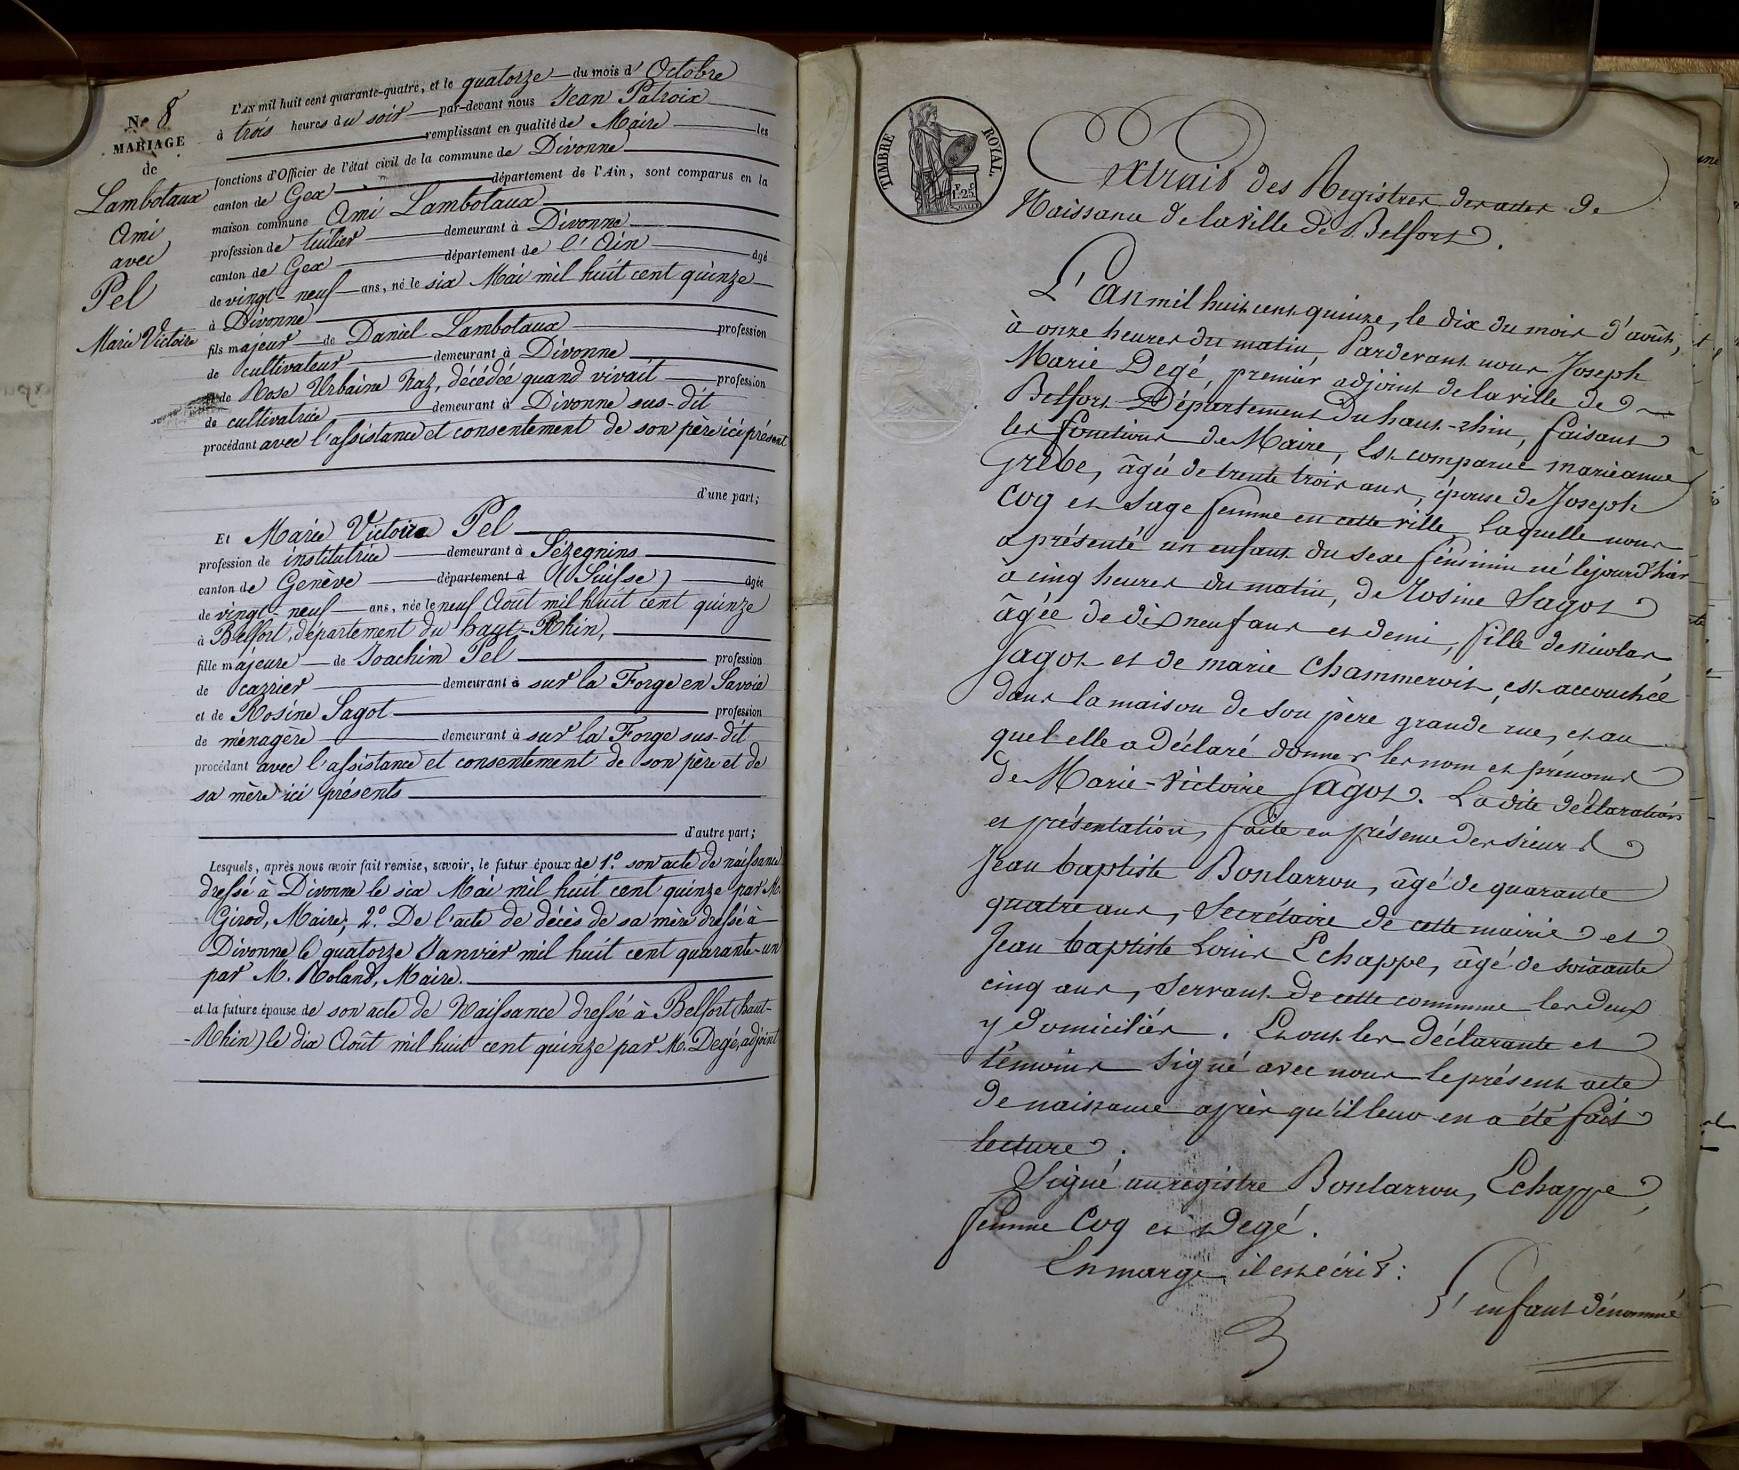 L'AN mil huit cent quarante-quatre, et le quatorze du mois d'Octobre
à trois heures du soir par-devant nous Jean Patroix
remplissant en qualité de Maire les
fonctions d'Officier de l'état civil de la commune de Divonne
canton de Gex département de l'Ain, sont comparus en la
maison commune Ami Lambotaux
profession de tuilier demeurant à Divonne
canton de Gex département de l'Ain âgé
de vingt-neuf ans, né le six Mai mil huit cent quinze
à Divonne
fils majeur de Daniel Lambotaux profession
de cultivateur demeurant à Divonne
et de Rose Urbaine Naz, décédée quand vivait profession
de cultivatrice demeurant à Divonne sus-dit
procédant avec l'assistance et consentement de son père ici présent
d'une part;
Et Marie Victoire Pel
profession de institutrice demeurant à Sézegnins
canton de Genève département d (Suisse) âgée
de vingt-neuf ans, née le neuf Août mil huit cent quinze
à Belfort, département du haut-Rhin,
fille majeure de Joachim Pel profession
de carrier demeurant à sur la Forge en Savoie
et de Rosine Sagot profession
de ménagère demeurant à sur la Forge sus-dit
procédant avec l'assistance et consentement de son père et de
sa mère ici présents
d'autre part;
Lesquels, après nous avoir fait remise, savoir, le futur époux de 1.º son acte de naissance
dressé à Divonne le six Mai mil huit cent quinze par M.
Girod, Maire; 2.º De l'acte de décès de sa mère dressé à
Divonne le quatorze Janvier mil huit cent quarante-un
par M. Roland, Maire.
et la future épouse de son acte de Naissance dressé à Belfort (haut-
-Rhin) le dix Août mil huit cent quinze par M. Degé, adjoint
Nº 8
MARIAGE
de
Lambotaux
Ami
avec
Pel
Marie Victoire
TIMBRE ROYAL
1.25
Extrait des Registres des actes de
Naissance de la Ville de Belfort.
L'An mil huit cent quinze, le dix du mois d'août,
à onze heures du matin, Pardevant nous Joseph
Marie Degé, premier adjoint de la ville de
Belfort Département du haut-rhin, faisant
les fonctions de Maire, Est comparue marieanne
Grebe, âgée de trente trois ans, épouse de Joseph
Coq et Sage femme en cette ville, laquelle nous
a présenté un enfant du sexe féminin né le jour d'hier
à cinq heures du matin, de Rosine Sagot
âgée de dix neuf ans et demi, fille de nicolas
Sagot et de marie Chammervit, est accouchée
dans la maison de son père grande rue, et au
quel elle a Déclaré donner les nom et prénoms
de Marie-Victoire Sagot. La dite déclaration
et présentation, faite en présence des sieurs
Jean baptiste Bonlarron, âgé de quarante
quatre ans, Secrétaire de cette mairie et
Jean baptiste Louis Echappe, âgé de soixante
cinq ans, Servant de cette commune les deux
y domiciliés. Et ont les déclarante et
témoins signé avec nous le présent acte
de naissance après qu'il leur en a été fait
lecture.
Signé au registre Bonlarron, Echappe,
femme Coq et Degé.
En marge il est écrit:
L'enfant dénommé